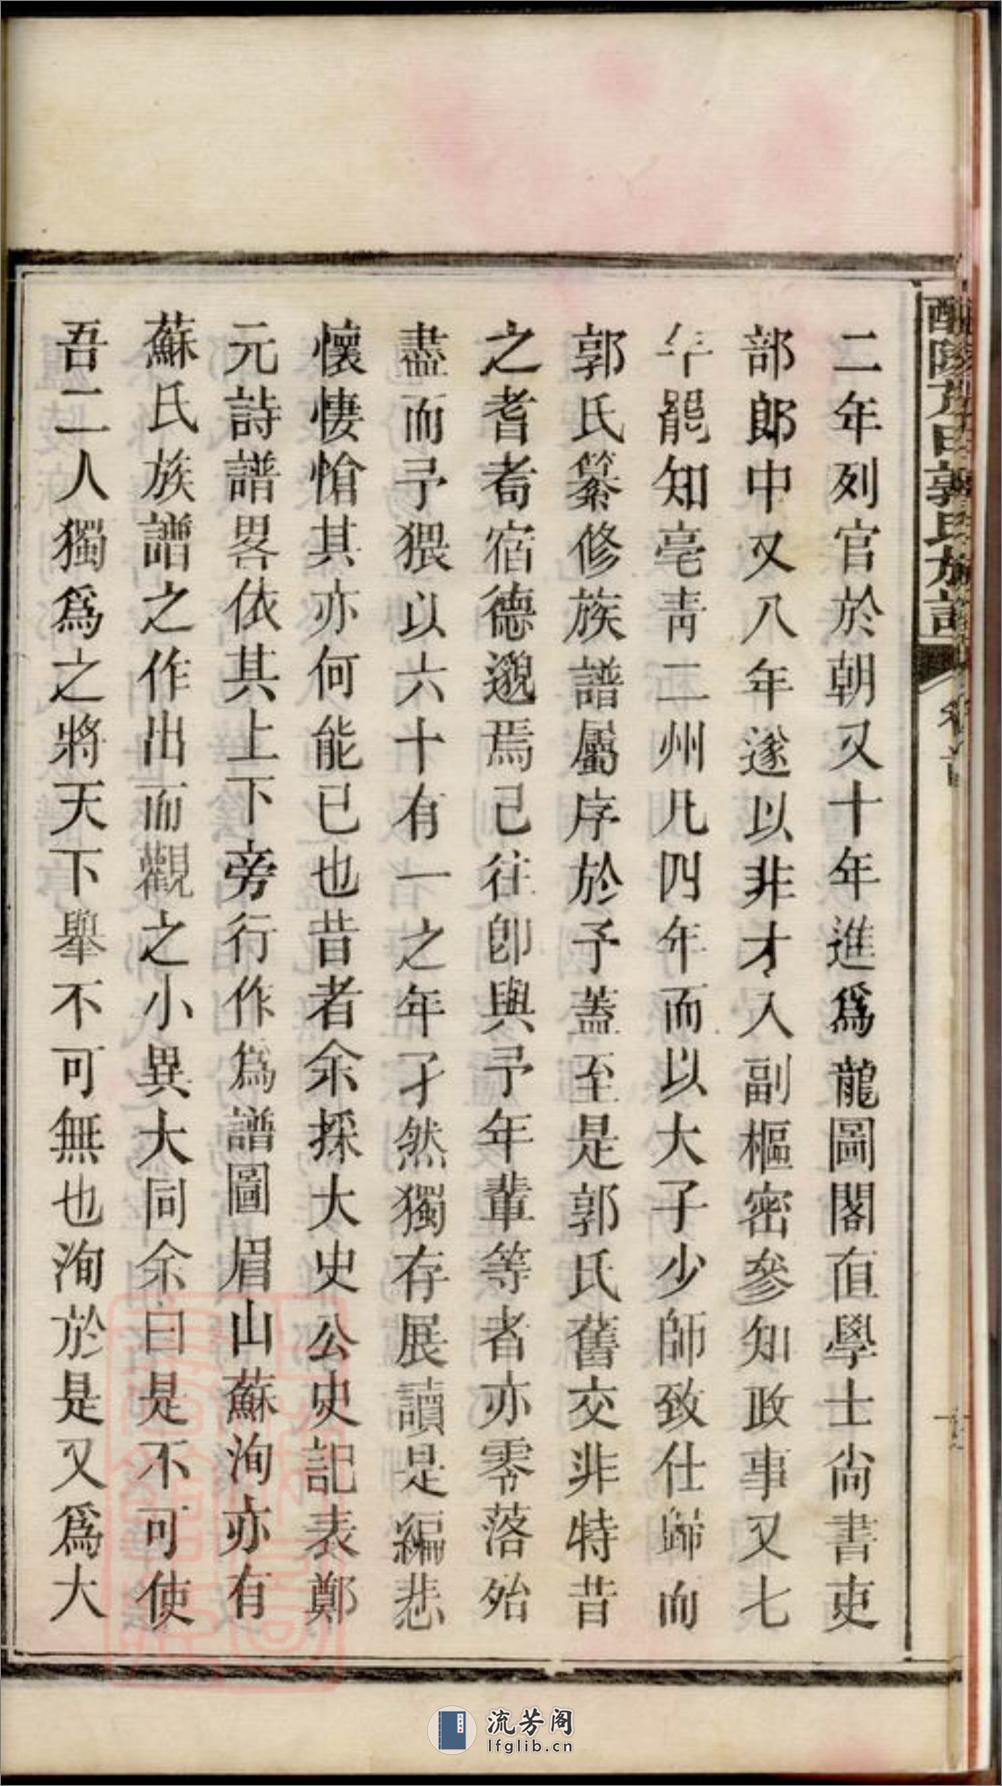 二年列官於朝又十年進爲龍圖閣直學士尙書吏
部郎中又八年遂以非才入副樞密參知政事又七
年罷知亳靑二州凡四年而以大子少師致仕歸而
郭氏纂修族譜屬序於予蓋至是郭氏舊交非特昔
之耆耇宿德邈焉已往卽與予年輩等者亦零落殆
盡而予猥以六十有一之年孑然獨存展讀是編悲
懷悽愴其亦何能已也昔者余採大史公史記表鄭
元詩譜畧依其上下旁行作爲譜圖眉山蘇洵亦有
蘇氏族譜之作出而觀之小異大同余曰是不可使
吾二人獨爲之將天下舉不可無也洵於是又爲大
郭氏族譜
流芳阁
lfglib.cn